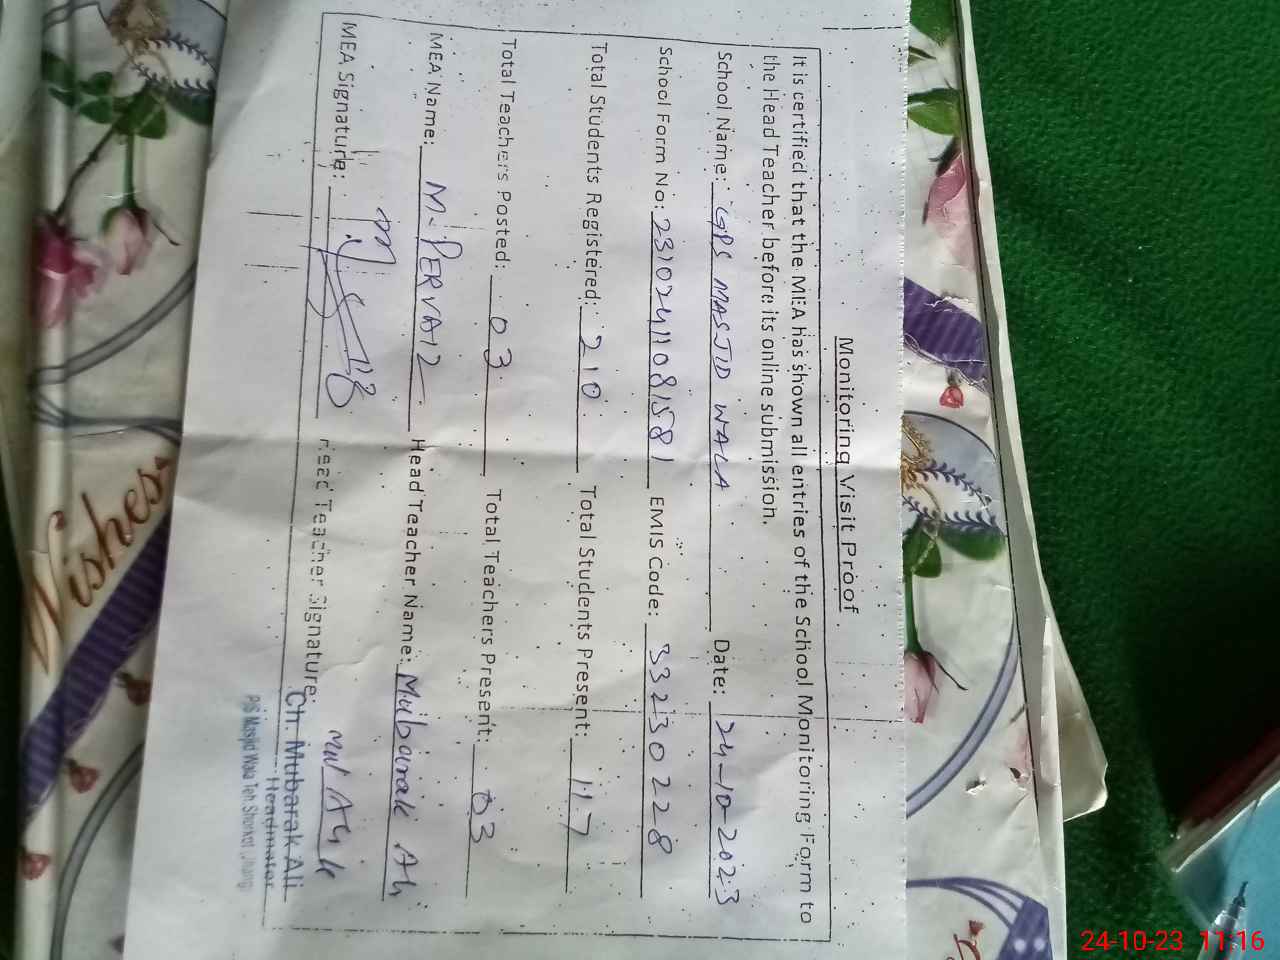 Monitoring Visit Proof
It is certified that the MEA has shown all entries of the School Monitoring Form to
the Head Teacher before its online submission.
School Name: GPS MASJID WALA Date: 24-10-2023
School Form No: 23102411081581 EMIS Code: 33230228
Total Students Registered: 210 Total Students Present: 117
Total Teachers Posted: 03 Total Teachers Present: 03
MEA Name: M. PERVAIZ Head Teacher Name: Mubarak Ali
MEA Signature: Head Teacher Signature:
Ch. Mubarak Ali
Headmaster
P/S Masjid Wala Teh. Shorkot Jhang
Wishes
24-10-23 11:16